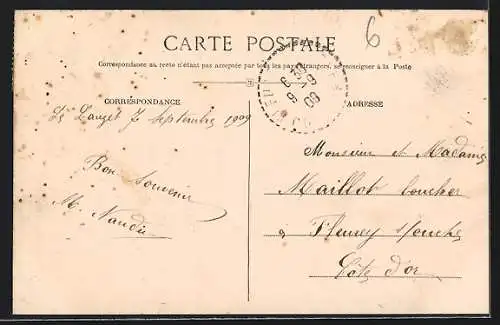 6
CARTE POSTALE
Correspondance au recto n'étant pas acceptée par tous les pays étrangers, se renseigner à la Poste
CORRESPONDANCE
ADRESSE
7 Septembre 1909
Bon Souvenir
M. Naudin
Monsieur et Madame
Maillot boucher
à Fleurey s/ouche
Côte d'or